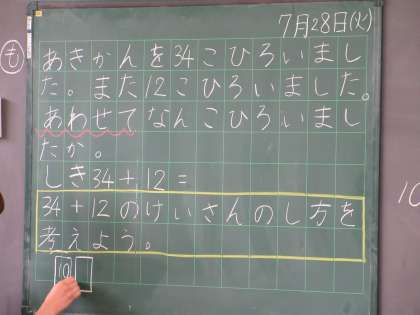 7月28日(火)
も
あきかんを34こひろいまし
た。また12こひろいました。
あわせてなんこひろいまし
たか。
しき34+12=
34+12のけいさんのし方を
考えよう。
10
10